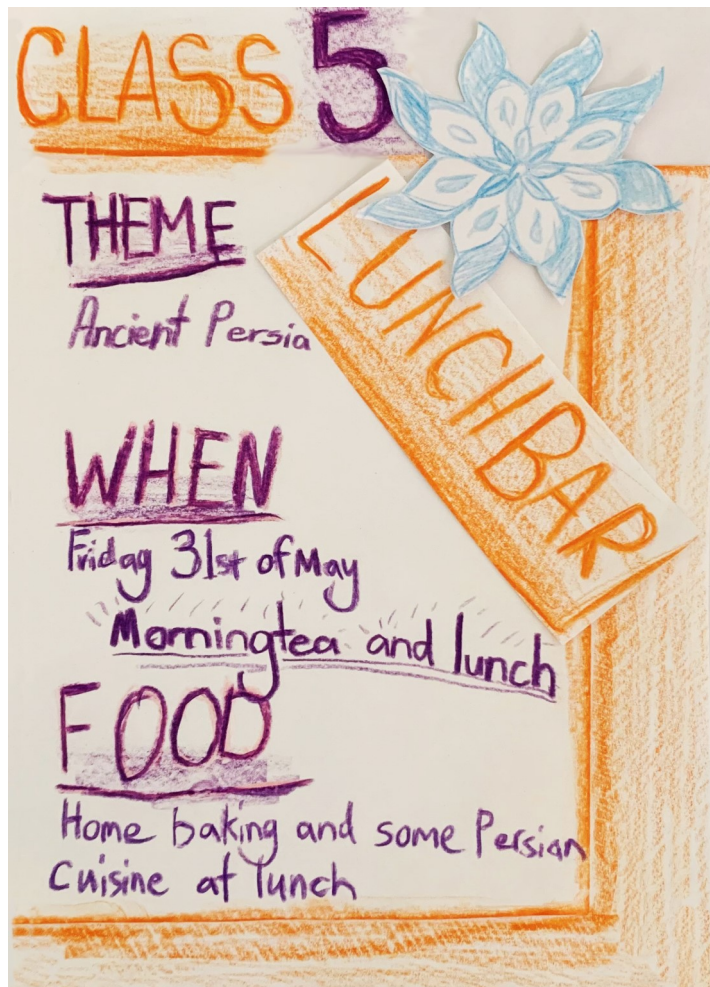 CLASS 5
LUNCHBAR
THEME
Ancient Persia
WHEN
Friday 31st of May
Morningtea and lunch
FOOD
Home baking and some Persian
Cuisine at lunch